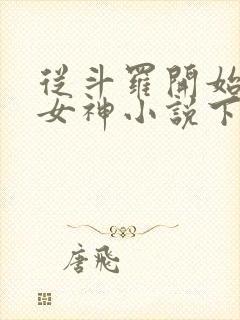 從斗羅開始
女神小説下
唐飛